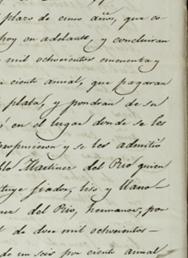 plazo de cinco años, que co-
hoy en adelante, y concluiran
mil ochocientos cincuenta y
ciento anual, que pagaran
plata, y pondran de su
en el lugar donde se les
proporcionen y se les admitió
Martinez del Rio quien
tuye fiador, liso y llano
del Rio, hermanos, por
de doce mil ochocientos
de un seis por ciento anual